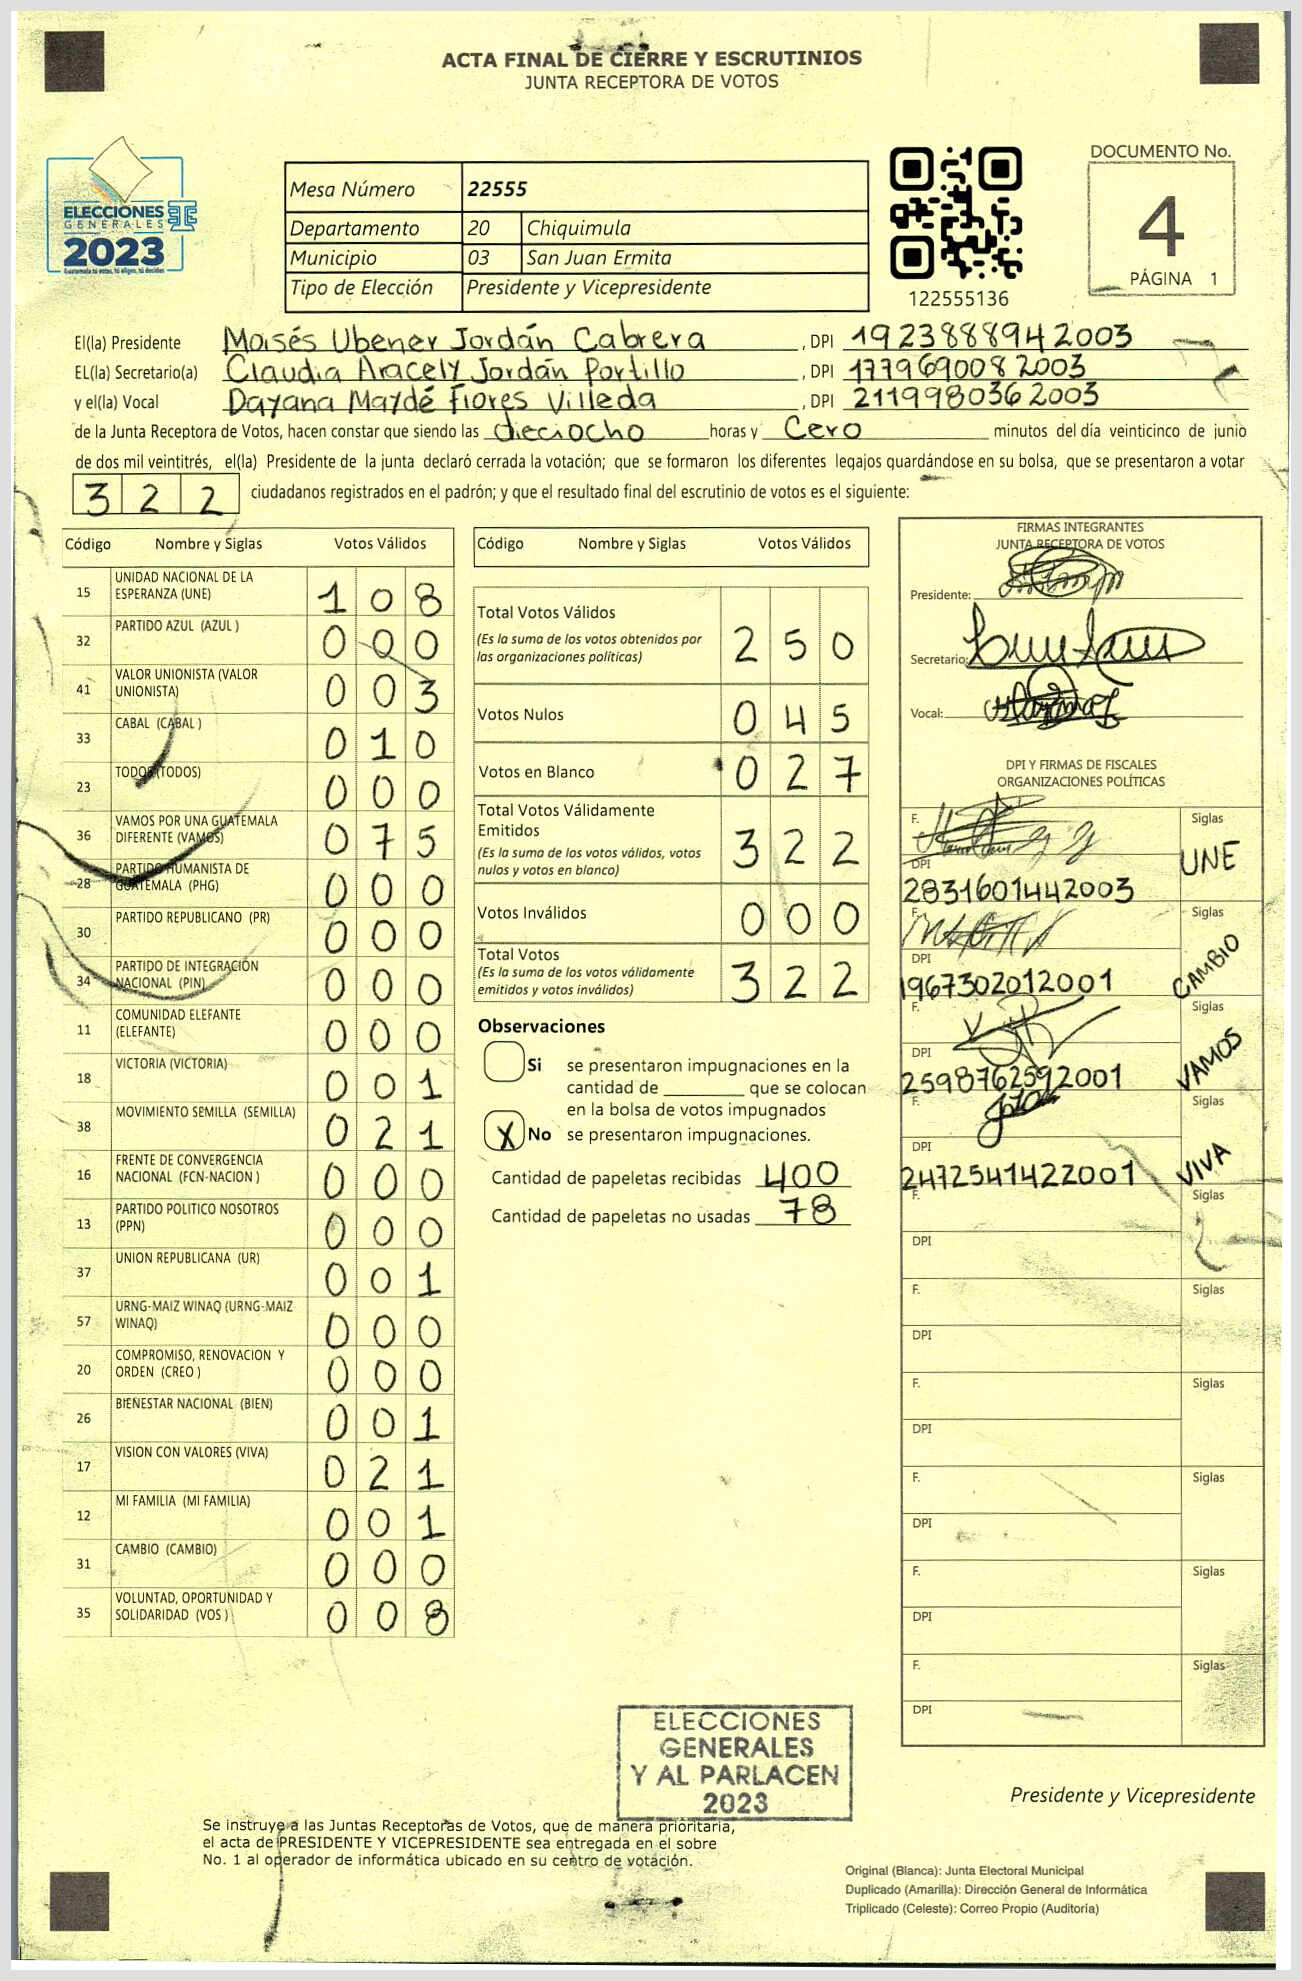 ACTA FINAL DE CIERRE Y ESCRUTINIOS
JUNTA RECEPTORA DE VOTOS
ELECCIONES
GENERALES
2023
Guatemala tú votas, tú eliges, tú decides
Mesa Número 22555
Departamento 20 Chiquimula
Municipio 03 San Juan Ermita
Tipo de Elección Presidente y Vicepresidente
122555136
DOCUMENTO No.
4
PÁGINA 1
El(la) Presidente Moisés Ubener Jordán Cabrera, DPI 1923888942003
EL(la) Secretario(a) Claudia Aracely Jordán Portillo, DPI 1779690082003
y el(la) Vocal Dayana Maydé Flores Villeda, DPI 2119980362003
de la Junta Receptora de Votos, hacen constar que siendo las dieciocho horas y Cero minutos del día veinticinco de junio
de dos mil veintitrés, el(la) Presidente de la junta declaró cerrada la votación; que se formaron los diferentes legajos guardándose en su bolsa, que se presentaron a votar
322 ciudadanos registrados en el padrón; y que el resultado final del escrutinio de votos es el siguiente:
Código Nombre y Siglas Votos Válidos
15 UNIDAD NACIONAL DE LA ESPERANZA (UNE) 108
32 PARTIDO AZUL (AZUL ) 000
41 VALOR UNIONISTA (VALOR UNIONISTA) 003
33 CABAL (CABAL ) 010
23 TODOS (TODOS) 000
36 VAMOS POR UNA GUATEMALA DIFERENTE (VAMOS) 075
28 PARTIDO HUMANISTA DE GUATEMALA (PHG) 000
30 PARTIDO REPUBLICANO (PR) 000
34 PARTIDO DE INTEGRACIÓN NACIONAL (PIN) 000
11 COMUNIDAD ELEFANTE (ELEFANTE) 000
18 VICTORIA (VICTORIA) 001
38 MOVIMIENTO SEMILLA (SEMILLA) 021
16 FRENTE DE CONVERGENCIA NACIONAL (FCN-NACION ) 000
13 PARTIDO POLITICO NOSOTROS (PPN) 000
37 UNION REPUBLICANA (UR) 001
57 URNG-MAIZ WINAQ (URNG-MAIZ WINAQ) 000
20 COMPROMISO, RENOVACION Y ORDEN (CREO ) 000
26 BIENESTAR NACIONAL (BIEN) 001
17 VISION CON VALORES (VIVA) 021
12 MI FAMILIA (MI FAMILIA) 001
31 CAMBIO (CAMBIO) 000
35 VOLUNTAD, OPORTUNIDAD Y SOLIDARIDAD (VOS ) 008
Código Nombre y Siglas Votos Válidos
Total Votos Válidos 250
(Es la suma de los votos obtenidos por
las organizaciones políticas)
Votos Nulos 045
Votos en Blanco 027
Total Votos Válidamente
Emitidos 322
(Es la suma de los votos válidos, votos
nulos y votos en blanco)
Votos Inválidos 000
Total Votos 322
(Es la suma de los votos válidamente
emitidos y votos inválidos)
Observaciones
Si se presentaron impugnaciones en la
cantidad de ________ que se colocan
en la bolsa de votos impugnados
X No se presentaron impugnaciones.
Cantidad de papeletas recibidas 400
Cantidad de papeletas no usadas 78
FIRMAS INTEGRANTES
JUNTA RECEPTORA DE VOTOS
Presidente:
Secretario:
Vocal:
DPI Y FIRMAS DE FISCALES
ORGANIZACIONES POLÍTICAS
F. Siglas
DPI UNE
2831601442003
F. Siglas
DPI CAMBIO
1967302012001
F. Siglas
DPI VAMOS
2598762592001
F. Siglas
DPI VIVA
2472541422001
F. Siglas
DPI
F. Siglas
DPI
F. Siglas
DPI
F. Siglas
DPI
F. Siglas
DPI
F. Siglas
DPI
ELECCIONES
GENERALES
Y AL PARLACEN
2023
Presidente y Vicepresidente
Se instruye a las Juntas Receptoras de Votos, que de manera prioritaria,
el acta de PRESIDENTE Y VICEPRESIDENTE sea entregada en el sobre
No. 1 al operador de informática ubicado en su centro de votación.
Original (Blanca): Junta Electoral Municipal
Duplicado (Amarilla): Dirección General de Informática
Triplicado (Celeste): Correo Propio (Auditoría)